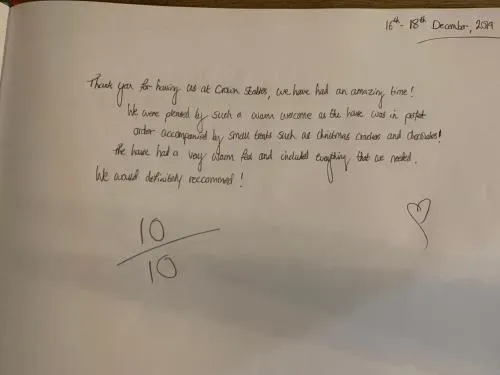 16th - 18th December, 2019
Thank you for having us at Crown Stables, we have had an amazing time!
We were pleated by such a warm welcome as the house was in perfect
order accompanied by small treats such as christmas crackers and chocolates!
The house had a very warm feel and included everything that we needed.
We would definitely reccommend!
10
10